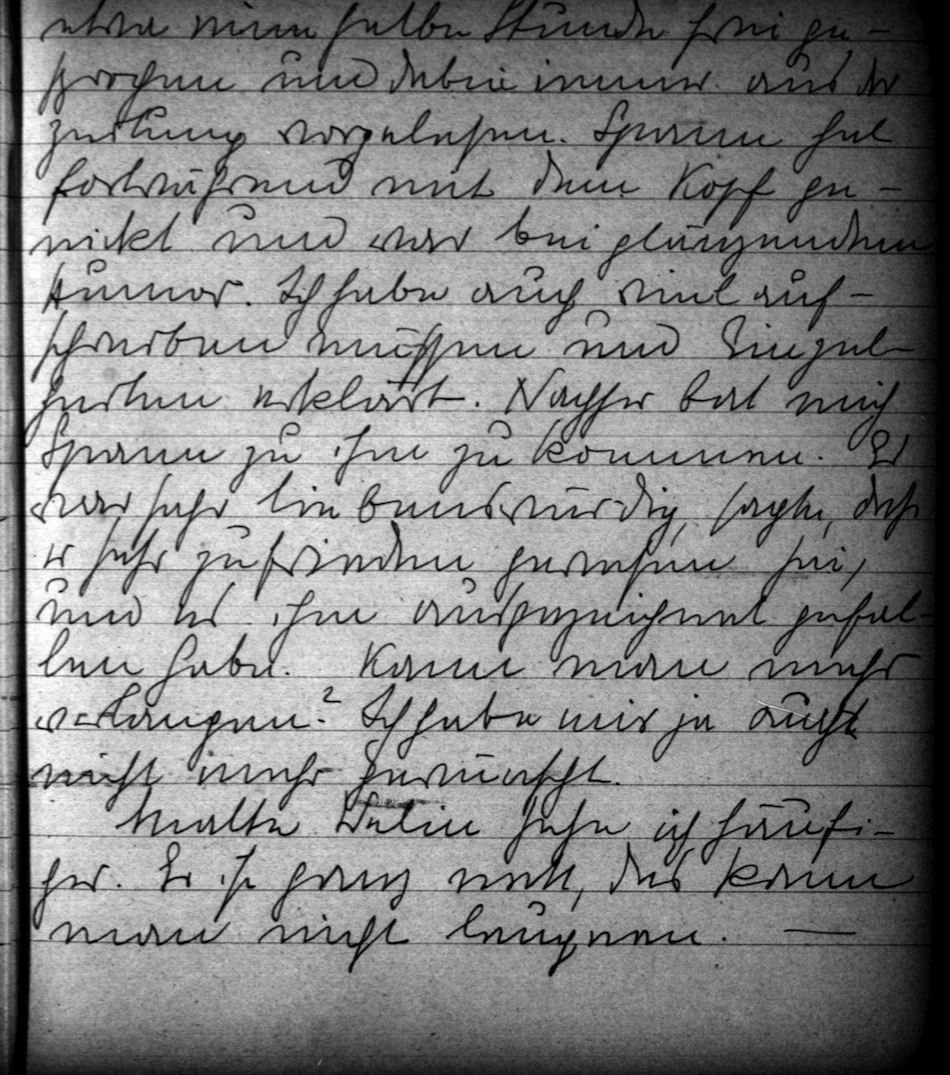 etwa eine halbe Stunde frei ge-
sprochen und dabei immer aus der
Zeitung vorgelesen. Spann hat
fortwährend mit dem Kopf ge-
nickt und war bei glänzendem
Humor. Ich habe auch viel auf-
schreiben müssen und Einzel-
heiten erklärt. Nachher bat mich
Spann zu ihm zu kommen. Er
war sehr liebenswürdig, sagte, daß
er sehr zufrieden gewesen sei,
und es ihm ausgezeichnet gefal-
len habe. Kann man mehr
verlangen? Ich habe mir ja auch
nicht mehr gewünscht.
Malte sehe ich häufi-
ger. Er ist ganz nett, das kann
man nicht leugnen. —